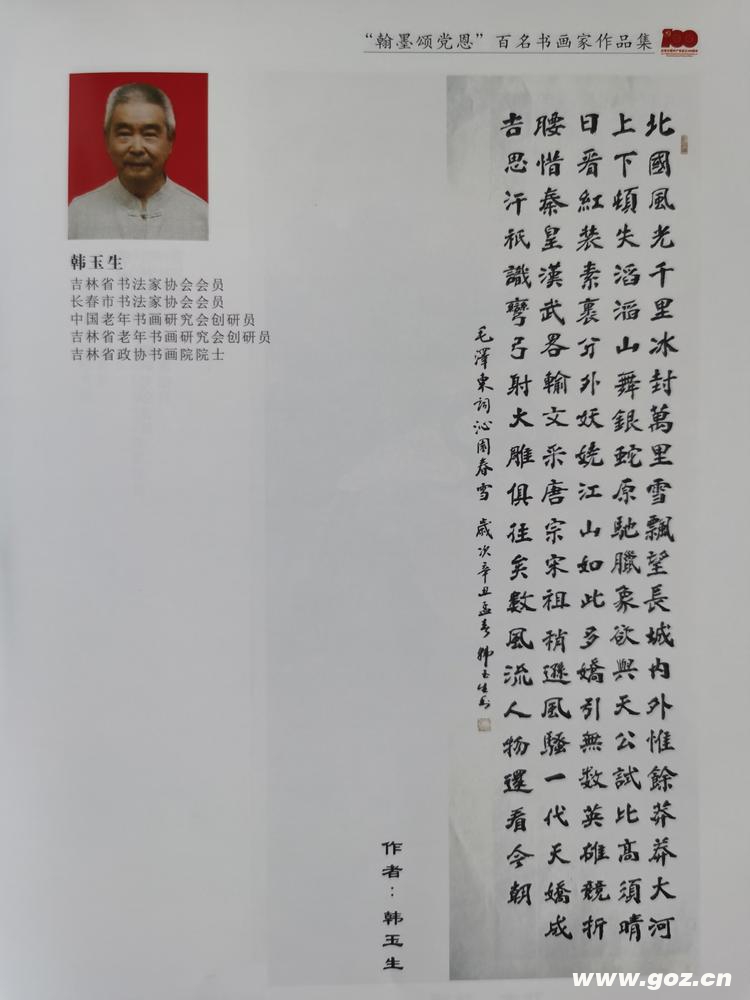 “翰墨颂党恩”百名书画家作品集
韩玉生
吉林省书法家协会会员
长春市书法家协会会员
中国老年书画研究会创研员
吉林省老年书画研究会创研员
吉林省政协书画院院士
北國風光千里冰封萬里雪飄望長城内外惟餘莽莽大河
上下頓失滔滔山舞銀蛇原馳臘象欲與天公試比高須晴
日看紅裝素裹分外妖娆江山如此多嬌引無数英雄競折
腰惜秦皇漢武畧輸文采唐宗宋祖稍遜風騷一代天嬌成
吉思汗祇識彎弓射大雕俱往矣數風流人物還看今朝
毛澤東詞沁園春雪 歲次辛丑孟春韩玉生书
作者：韩玉生
www.goz.cn